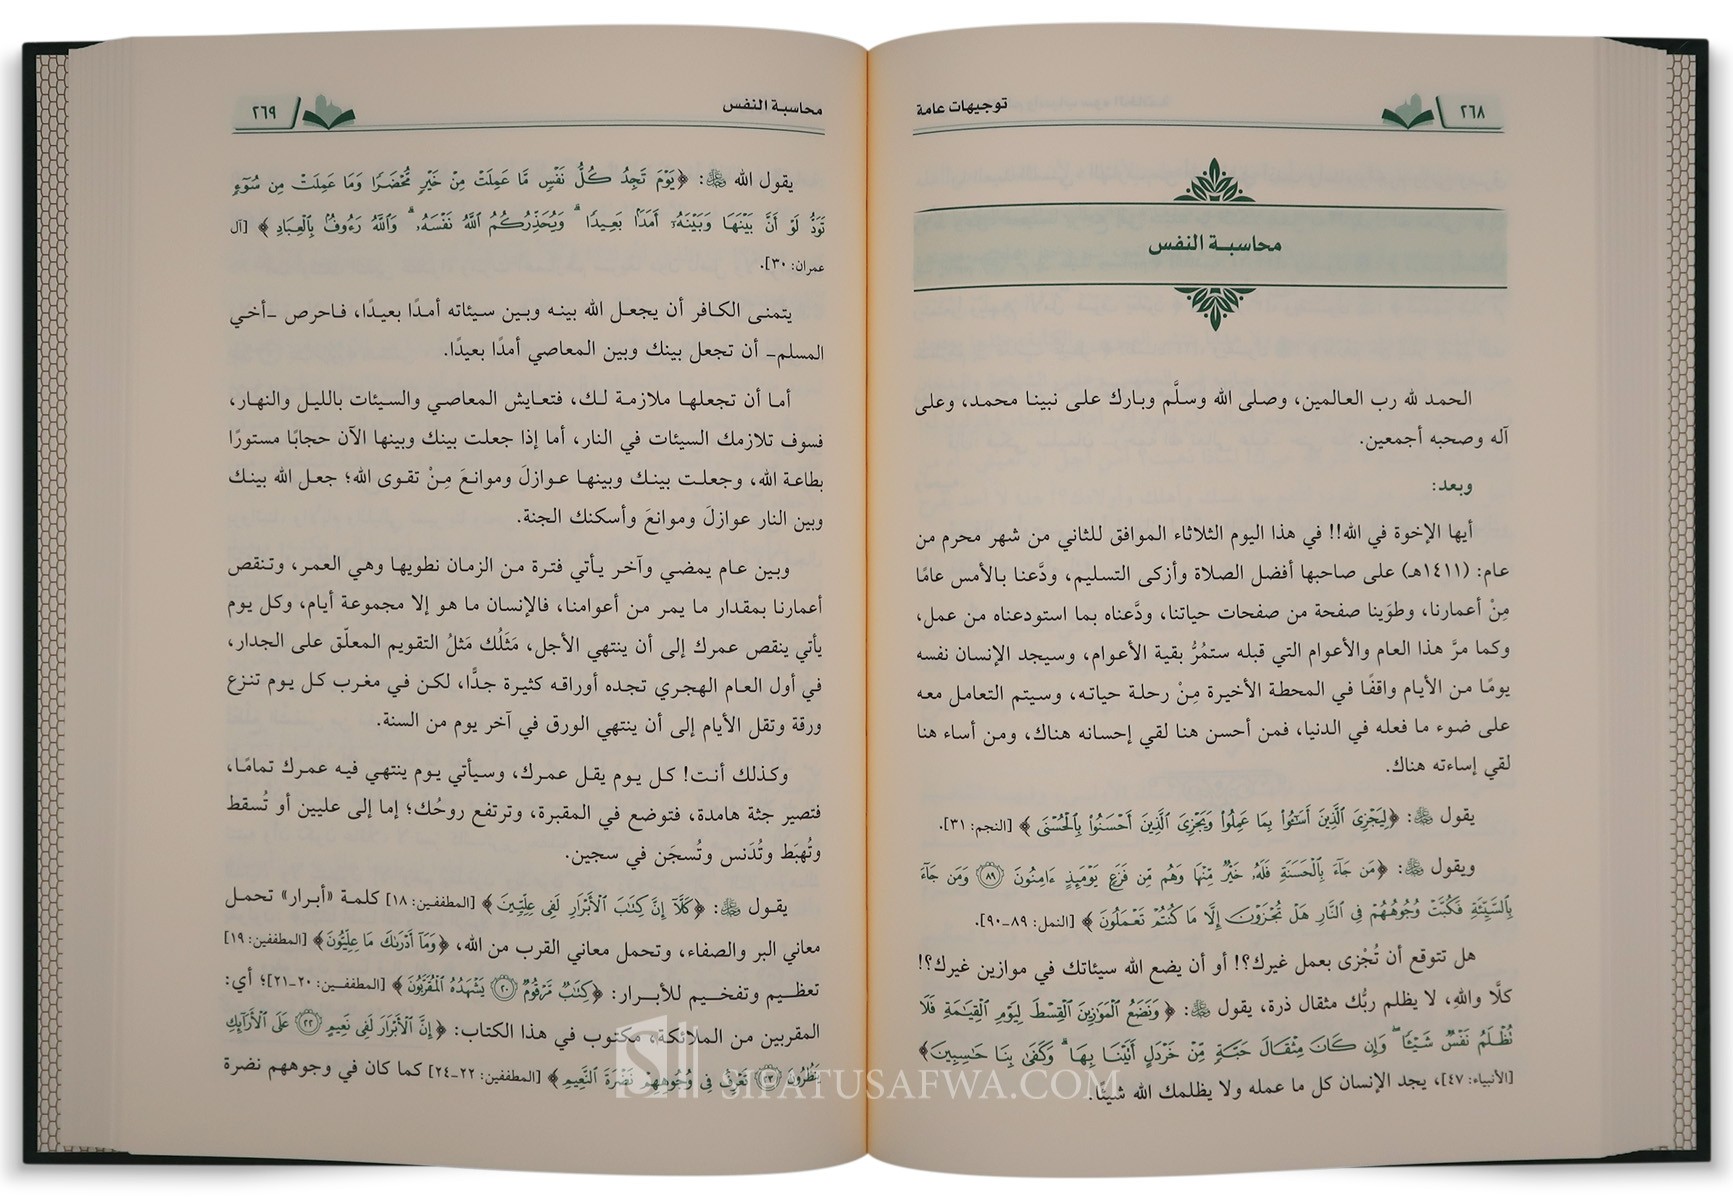 ٢٦٨
توجيهات عامة
محاسبة النفس
الحمد لله رب العالمين، وصلى الله وسلَّم وبارك على نبينا محمد، وعلى
آله وصحبه أجمعين.
وبعد:
أيها الإخوة في الله!! في هذا اليوم الثلاثاء الموافق للثاني من شهر محرم من
عام: (١٤١١هـ) على صاحبها أفضل الصلاة وأزكى التسليم، ودَّعنا بالأمس عامًا
مِنْ أعمارنا، وطوَينا صفحة من صفحات حياتنا، ودَّعناه بما استودعناه من عمل،
وكما مرَّ هذا العام والأعوام التي قبله ستمُرُّ بقية الأعوام، وسيجد الإنسان نفسه
يومًا من الأيام واقفًا في المحطة الأخيرة مِنْ رحلة حياته، وسيتم التعامل معه
على ضوء ما فعله في الدنيا، فمن أحسن هنا لقي إحسانه هناك، ومن أساء هنا
لقي إساءته هناك.
يقول ﷻ: ﴿لِيَجْزِىَ ٱلَّذِينَ أَسَٰٓـُٔوا۟ بِمَا عَمِلُوا۟ وَيَجْزِىَ ٱلَّذِينَ أَحْسَنُوا۟ بِٱلْحُسْنَى﴾ [النجم: ٣١].
ويقول ﷻ: ﴿مَن جَآءَ بِٱلْحَسَنَةِ فَلَهُۥ خَيْرٌ مِّنْهَا وَهُم مِّن فَزَعٍ يَوْمَئِذٍ ءَامِنُونَ ٨٩ وَمَن جَآءَ
بِٱلسَّيِّئَةِ فَكُبَّتْ وُجُوهُهُمْ فِى ٱلنَّارِ هَلْ تُجْزَوْنَ إِلَّا مَا كُنتُمْ تَعْمَلُونَ﴾ [النمل: ٨٩-٩٠].
هل تتوقع أن تُجْزى بعمل غيرك؟! أو أن يضع الله سيئاتك في موازين غيرك؟!
كلَّا واللهِ، لا يظلم ربُّك مثقال ذرة، يقول ﷻ: ﴿وَنَضَعُ ٱلْمَوَٰزِينَ ٱلْقِسْطَ لِيَوْمِ ٱلْقِيَٰمَةِ فَلَا
تُظْلَمُ نَفْسٌ شَيْـًٔا ۖ وَإِن كَانَ مِثْقَالَ حَبَّةٍ مِّنْ خَرْدَلٍ أَتَيْنَا بِهَا ۗ وَكَفَىٰ بِنَا حَٰسِبِينَ﴾
[الأنبياء: ٤٧]، يجد الإنسان كل ما عمله ولا يظلمك الله شيئًا.
محاسبة النفس
٢٦٩
يقول الله ﷻ: ﴿يَوْمَ تَجِدُ كُلُّ نَفْسٍ مَّا عَمِلَتْ مِنْ خَيْرٍ مُّحْضَرًا وَمَا عَمِلَتْ مِن سُوٓءٍ
تَوَدُّ لَوْ أَنَّ بَيْنَهَا وَبَيْنَهُۥٓ أَمَدًۢا بَعِيدًا ۗ وَيُحَذِّرُكُمُ ٱللَّهُ نَفْسَهُۥ ۗ وَٱللَّهُ رَءُوفٌۢ بِٱلْعِبَادِ﴾ [آل
عمران: ٣٠].
يتمنى الكافر أن يجعل الله بينه وبين سيئاته أمدًا بعيدًا، فاحرص -أخي
المسلم- أن تجعل بينك وبين المعاصي أمدًا بعيدًا.
أما أن تجعلها ملازمة لك، فتعايش المعاصي والسيئات بالليل والنهار،
فسوف تلازمك السيئات في النار، أما إذا جعلت بينك وبينها الآن حجابًا مستورًا
بطاعة الله، وجعلت بينك وبينها عوازلَ وموانعَ مِنْ تقوى الله؛ جعل الله بينك
وبين النار عوازلَ وموانعَ وأسكنك الجنة.
وبين عام يمضي وآخر يأتي فترة من الزمان نطويها وهي العمر، وتنقص
أعمارنا بمقدار ما يمر من أعوامنا، فالإنسان ما هو إلا مجموعة أيام، وكل يوم
يأتي ينقص عمرك إلى أن ينتهي الأجل، مَثَلُك مَثلُ التقويم المعلّق على الجدار،
في أول العام الهجري تجده أوراقه كثيرة جدًّا، لكن في مغرب كل يوم تنزع
ورقة وتقل الأيام إلى أن ينتهي الورق في آخر يوم من السنة.
وكذلك أنت! كل يوم يقل عمرك، وسيأتي يوم ينتهي فيه عمرك تمامًا،
فتصير جثة هامدة، فتوضع في المقبرة، وترتفع روحُك؛ إما إلى عليين أو تُسقط
وتُهبَط وتُدَنس وتُسجَن في سجين.
يقول ﷻ: ﴿كَلَّآ إِنَّ كِتَٰبَ ٱلْأَبْرَارِ لَفِى عِلِّيِّينَ﴾ [المطففين: ١٨] كلمة «أبرار» تحمل
معاني البر والصفاء، وتحمل معاني القرب من الله، ﴿وَمَآ أَدْرَىٰكَ مَا عِلِّيُّونَ﴾ [المطففين: ١٩]
تعظيم وتفخيم للأبرار: ﴿كِتَٰبٌ مَّرْقُومٌ ٢٠ يَشْهَدُهُ ٱلْمُقَرَّبُونَ﴾ [المطففين: ٢٠-٢١]؛ أي:
المقربين من الملائكة، مكتوب في هذا الكتاب: ﴿إِنَّ ٱلْأَبْرَارَ لَفِى نَعِيمٍ ٢٢ عَلَى ٱلْأَرَآئِكِ
يَنظُرُونَ ٢٣ تَعْرِفُ فِى وُجُوهِهِمْ نَضْرَةَ ٱلنَّعِيمِ﴾ [المطففين: ٢٢-٢٤] كما كان في وجوههم نضرة
SIFATUSAFWA.COM